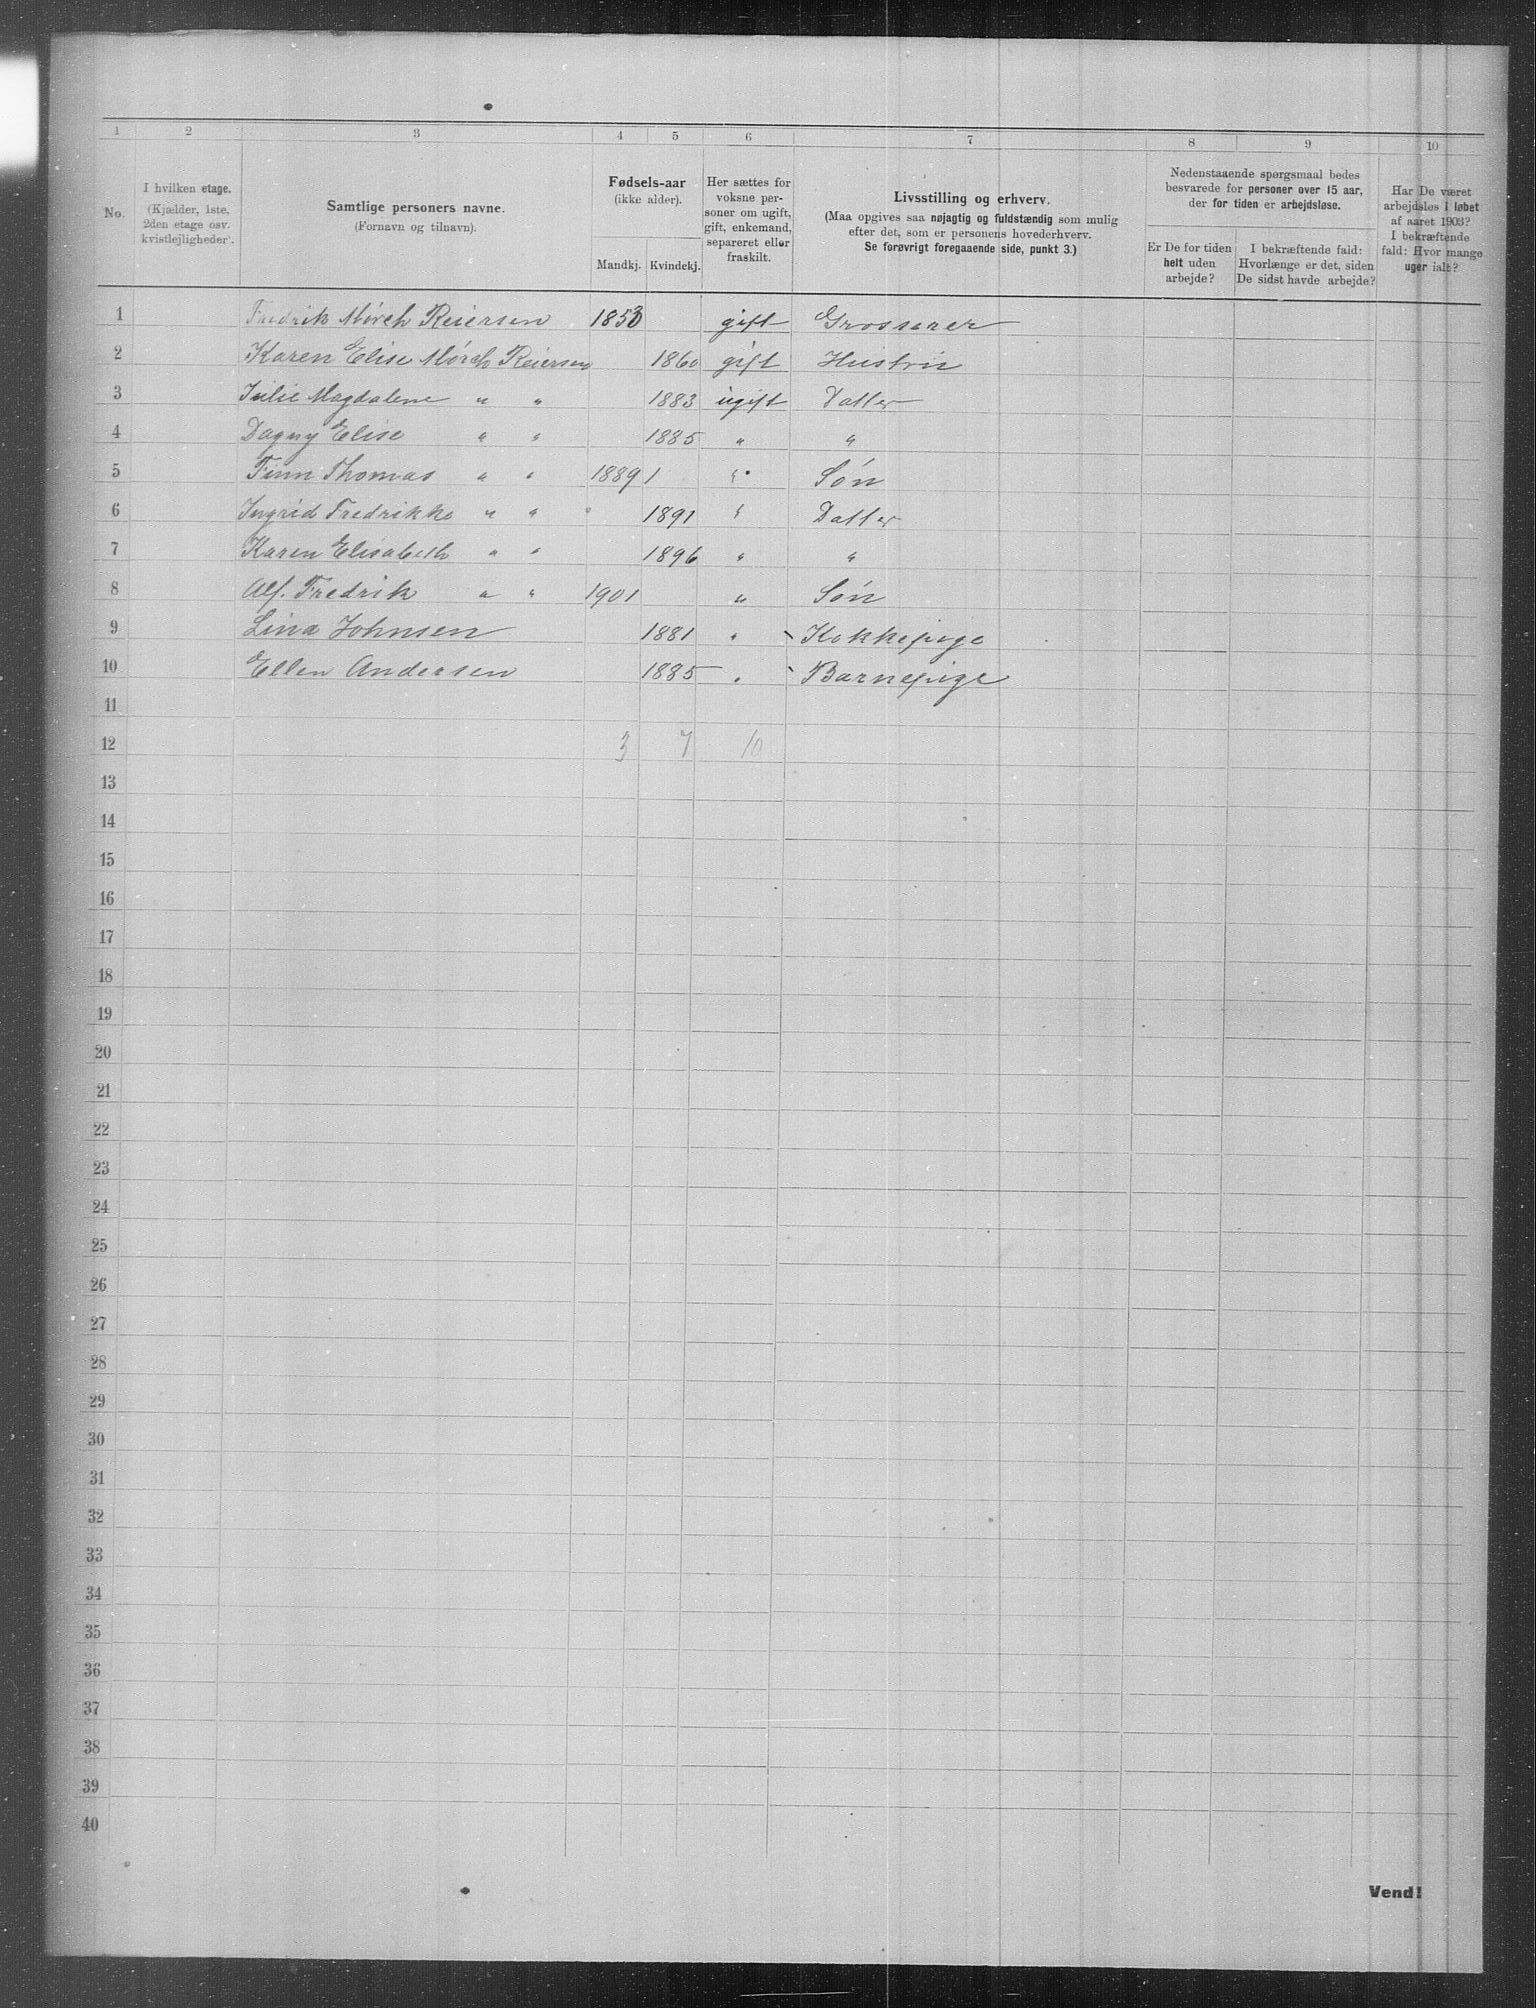 1 2 3 4 5 6 7 8 9 10
No.
I hvilken etage.
(Kjælder, 1ste,
2den etage osv.
kvistlejligheder).
Samtlige personers navne.
(Fornavn og tilnavn).
Fødsels-aar
(ikke alder).
Mandkj. Kvindekj.
Her sættes for
voksne per-
soner om ugift,
gift, enkemand,
separeret eller
fraskilt.
Livsstilling og erhverv.
(Maa opgives saa nøjagtig og fuldstændig som mulig
efter det, som er personens hovederhverv.
Se forøvrigt foregaaende side, punkt 3.)
Nedenstaaende spørgsmaal bedes
besvarede for personer over 15 aar,
der for tiden er arbejdsløse.
Er De for tiden
helt uden
arbejde?
I bekræftende fald:
Hvorlænge er det, siden
De sidst havde arbejde?
Har De været
arbejdsløs i løbet
af aaret 1903?
I bekræftende
fald: Hvor mange
uger ialt?
1 Fredrik Mørch Reiersen 1853 gift Grosserer
2 Karen Elise Mørch Reiersen 1860 gift Hustru
3 Julie Magdalene " " 1883 ugift Datter
4 Dagny Elise " " 1885 " "
5 Finn Thomas " " 1889 " Søn
6 Ingrid Fredrikke " " 1891 " Datter
7 Karen Elisabeth " " 1896 " "
8 Alf. Fredrik " " 1901 " Søn
9 Lina Johnsen 1881 " Kokkepige
10 Ellen Andersen 1885 " Barnepige
11
12 3 7 10
13
14
15
16
17
18
19
20
21
22
23
24
25
26
27
28
29
30
31
32
33
34
35
36
37
38
39
40
Vend!